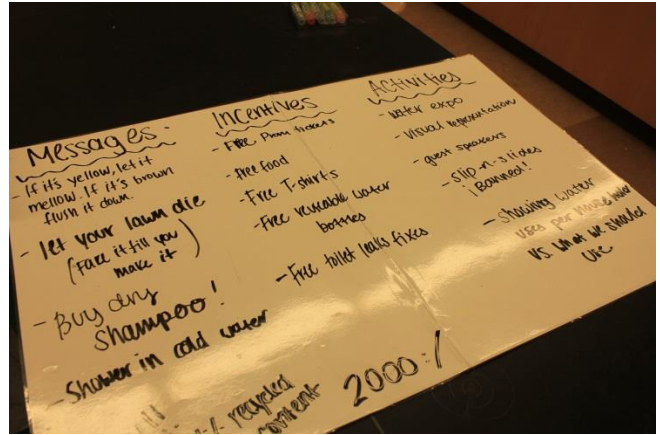 Messages:
- If it's yellow, let it
mellow. If it's brown
flush it down.
- let your lawn die
(Fake it till you
make it)
- Buy dry
Shampoo!
- Shower in cold water
Incentives
- Free Prom tickets
- free food
- Free T-shirts
- Free reusable water
bottles
- Free toilet leaks fixes
Activities
- water expo
- visual representation
- guest speakers
- slip-n-slides
¡Banned!
- Showing water
uses per house
vs. what we should
use
recycled
content
2000:/